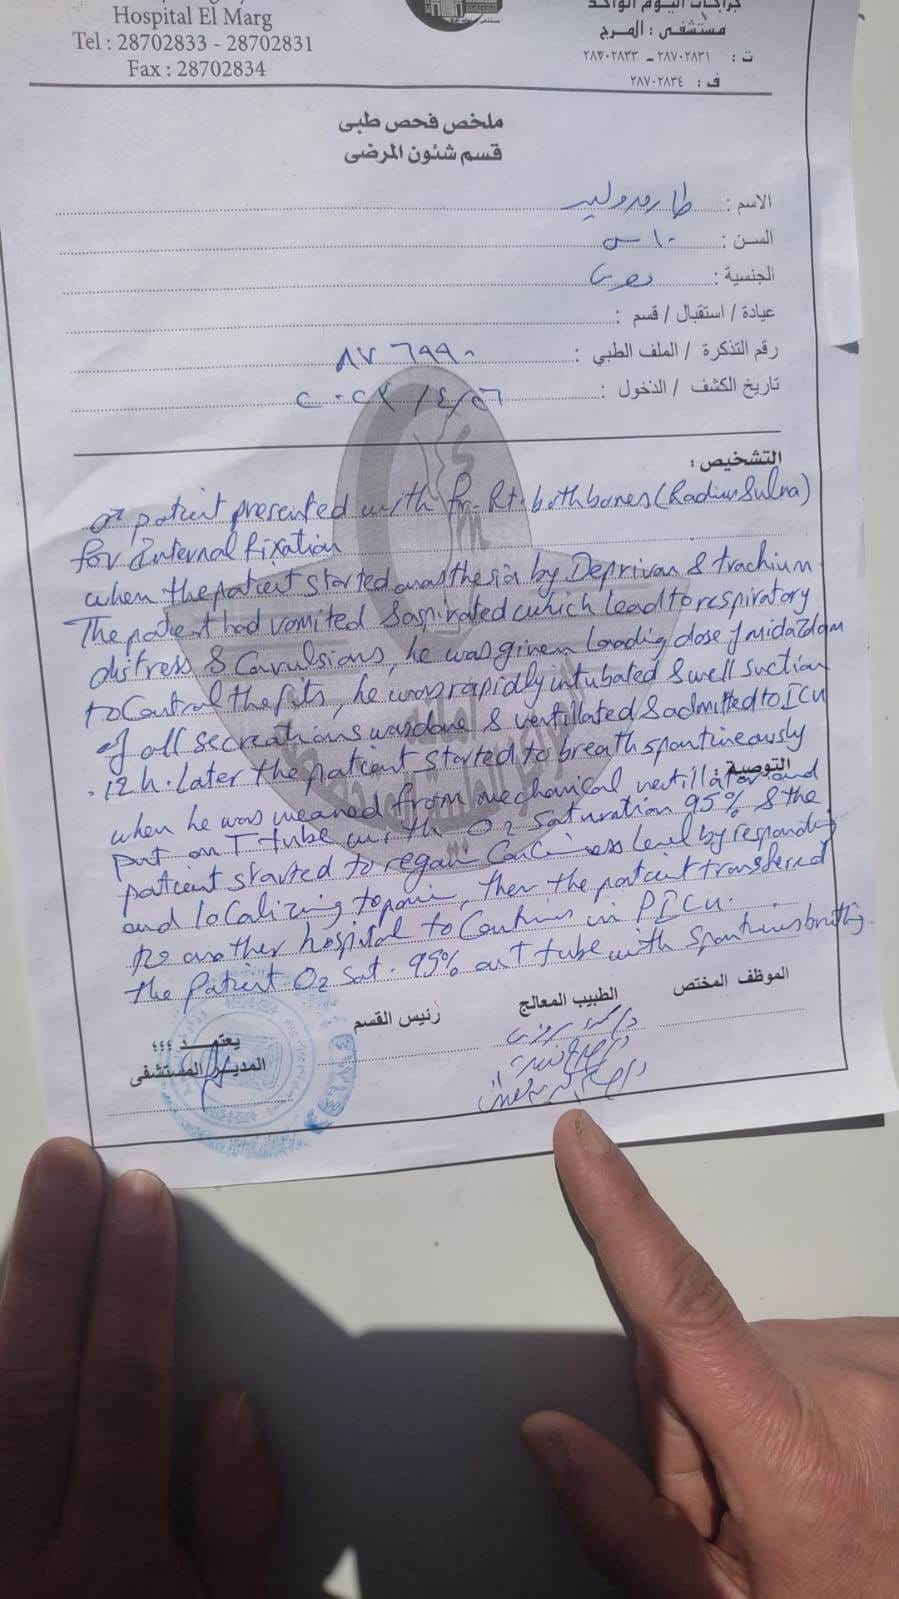 Hospital El Marg
Tel : 28702833 - 28702831
Fax : 28702834
جراحات اليوم الواحد
مستشفى : المرج
ت : ٢٨٧٠٢٨٣١ - ٢٨٧٠٢٨٣٣
ف : ٢٨٧٠٢٨٣٤
ملخص فحص طبى
قسم شئون المرضى
الاسم :
السن : ١٠ س
الجنسية :
عيادة / استقبال / قسم :
رقم التذكرة / الملف الطبي :
تاريخ الكشف / الدخول :
التشخيص :
patient presented with fr. Rt. both bones (Radius & ulna)
for Internal fixation
when the patient started anasthesia by Deprivan & trachium
The patient had vomited & aspirated which lead to respiratory
distress & Convulsions, he was given loading dose of midazolam
to Control the fits, he was rapidly intubated & well suction
of all secreations was done & ventillated & admitted to ICU
. 12 h. Later the patient started to breath spontineously
التوصية :
when he was weaned from mechanical ventillator and
put on T-tube with O2 saturation 95% & the
patient started to regain level by responding
and localizing to pain, then the patient transfered
to another hospital to Continue in PICU.
the Patient O2 Sat. 95% on T tube with
الموظف المختص
الطبيب المعالج
رئيس القسم
يعتمد ،،،
المدير المستشفى